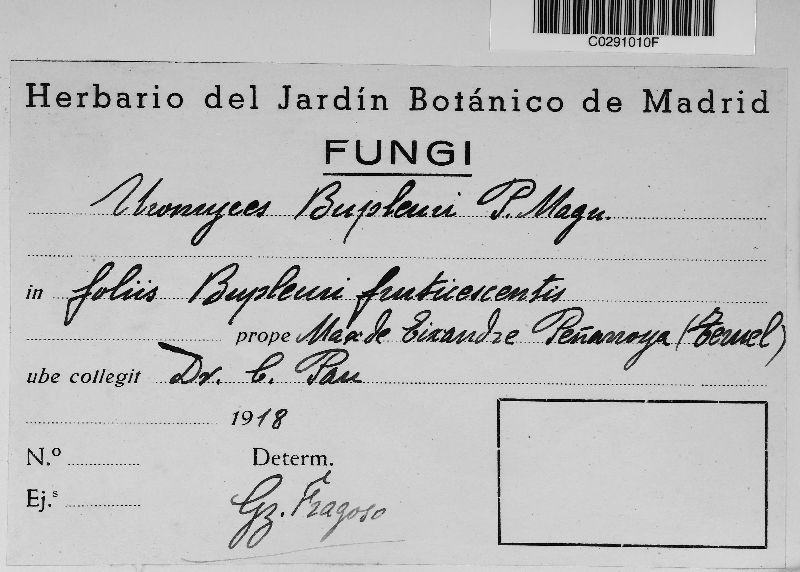 C0291010F
Herbario del Jardín Botánico de Madrid
FUNGI
Uromyces Bupleuri P. Magn.
in foliis Bupleuri fruticescentis
prope de Peñarroya (Teruel)
ube collegit Dr. C. Pau
1918
N.º Determ.
Ej.s Gz. Fragoso